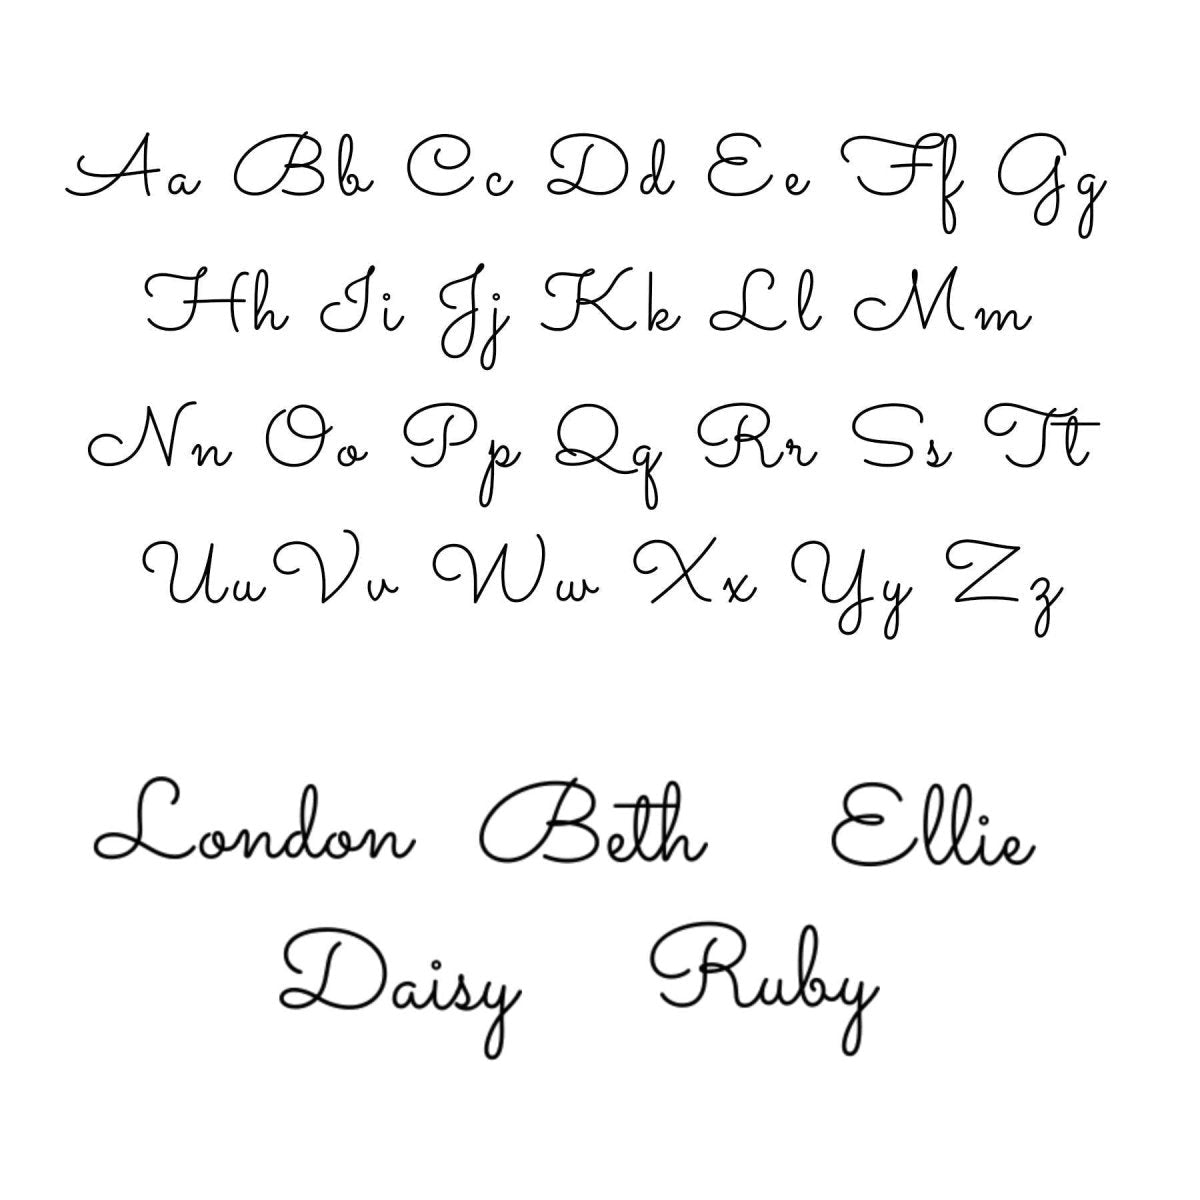 Aa Bb Cc Dd Ee Ff Gg
Hh Ii Jj Kk Ll Mm
Nn Oo Pp Qq Rr Ss Tt
Uu Vv Ww Xx Yy Zz
London Beth Ellie
Daisy Ruby